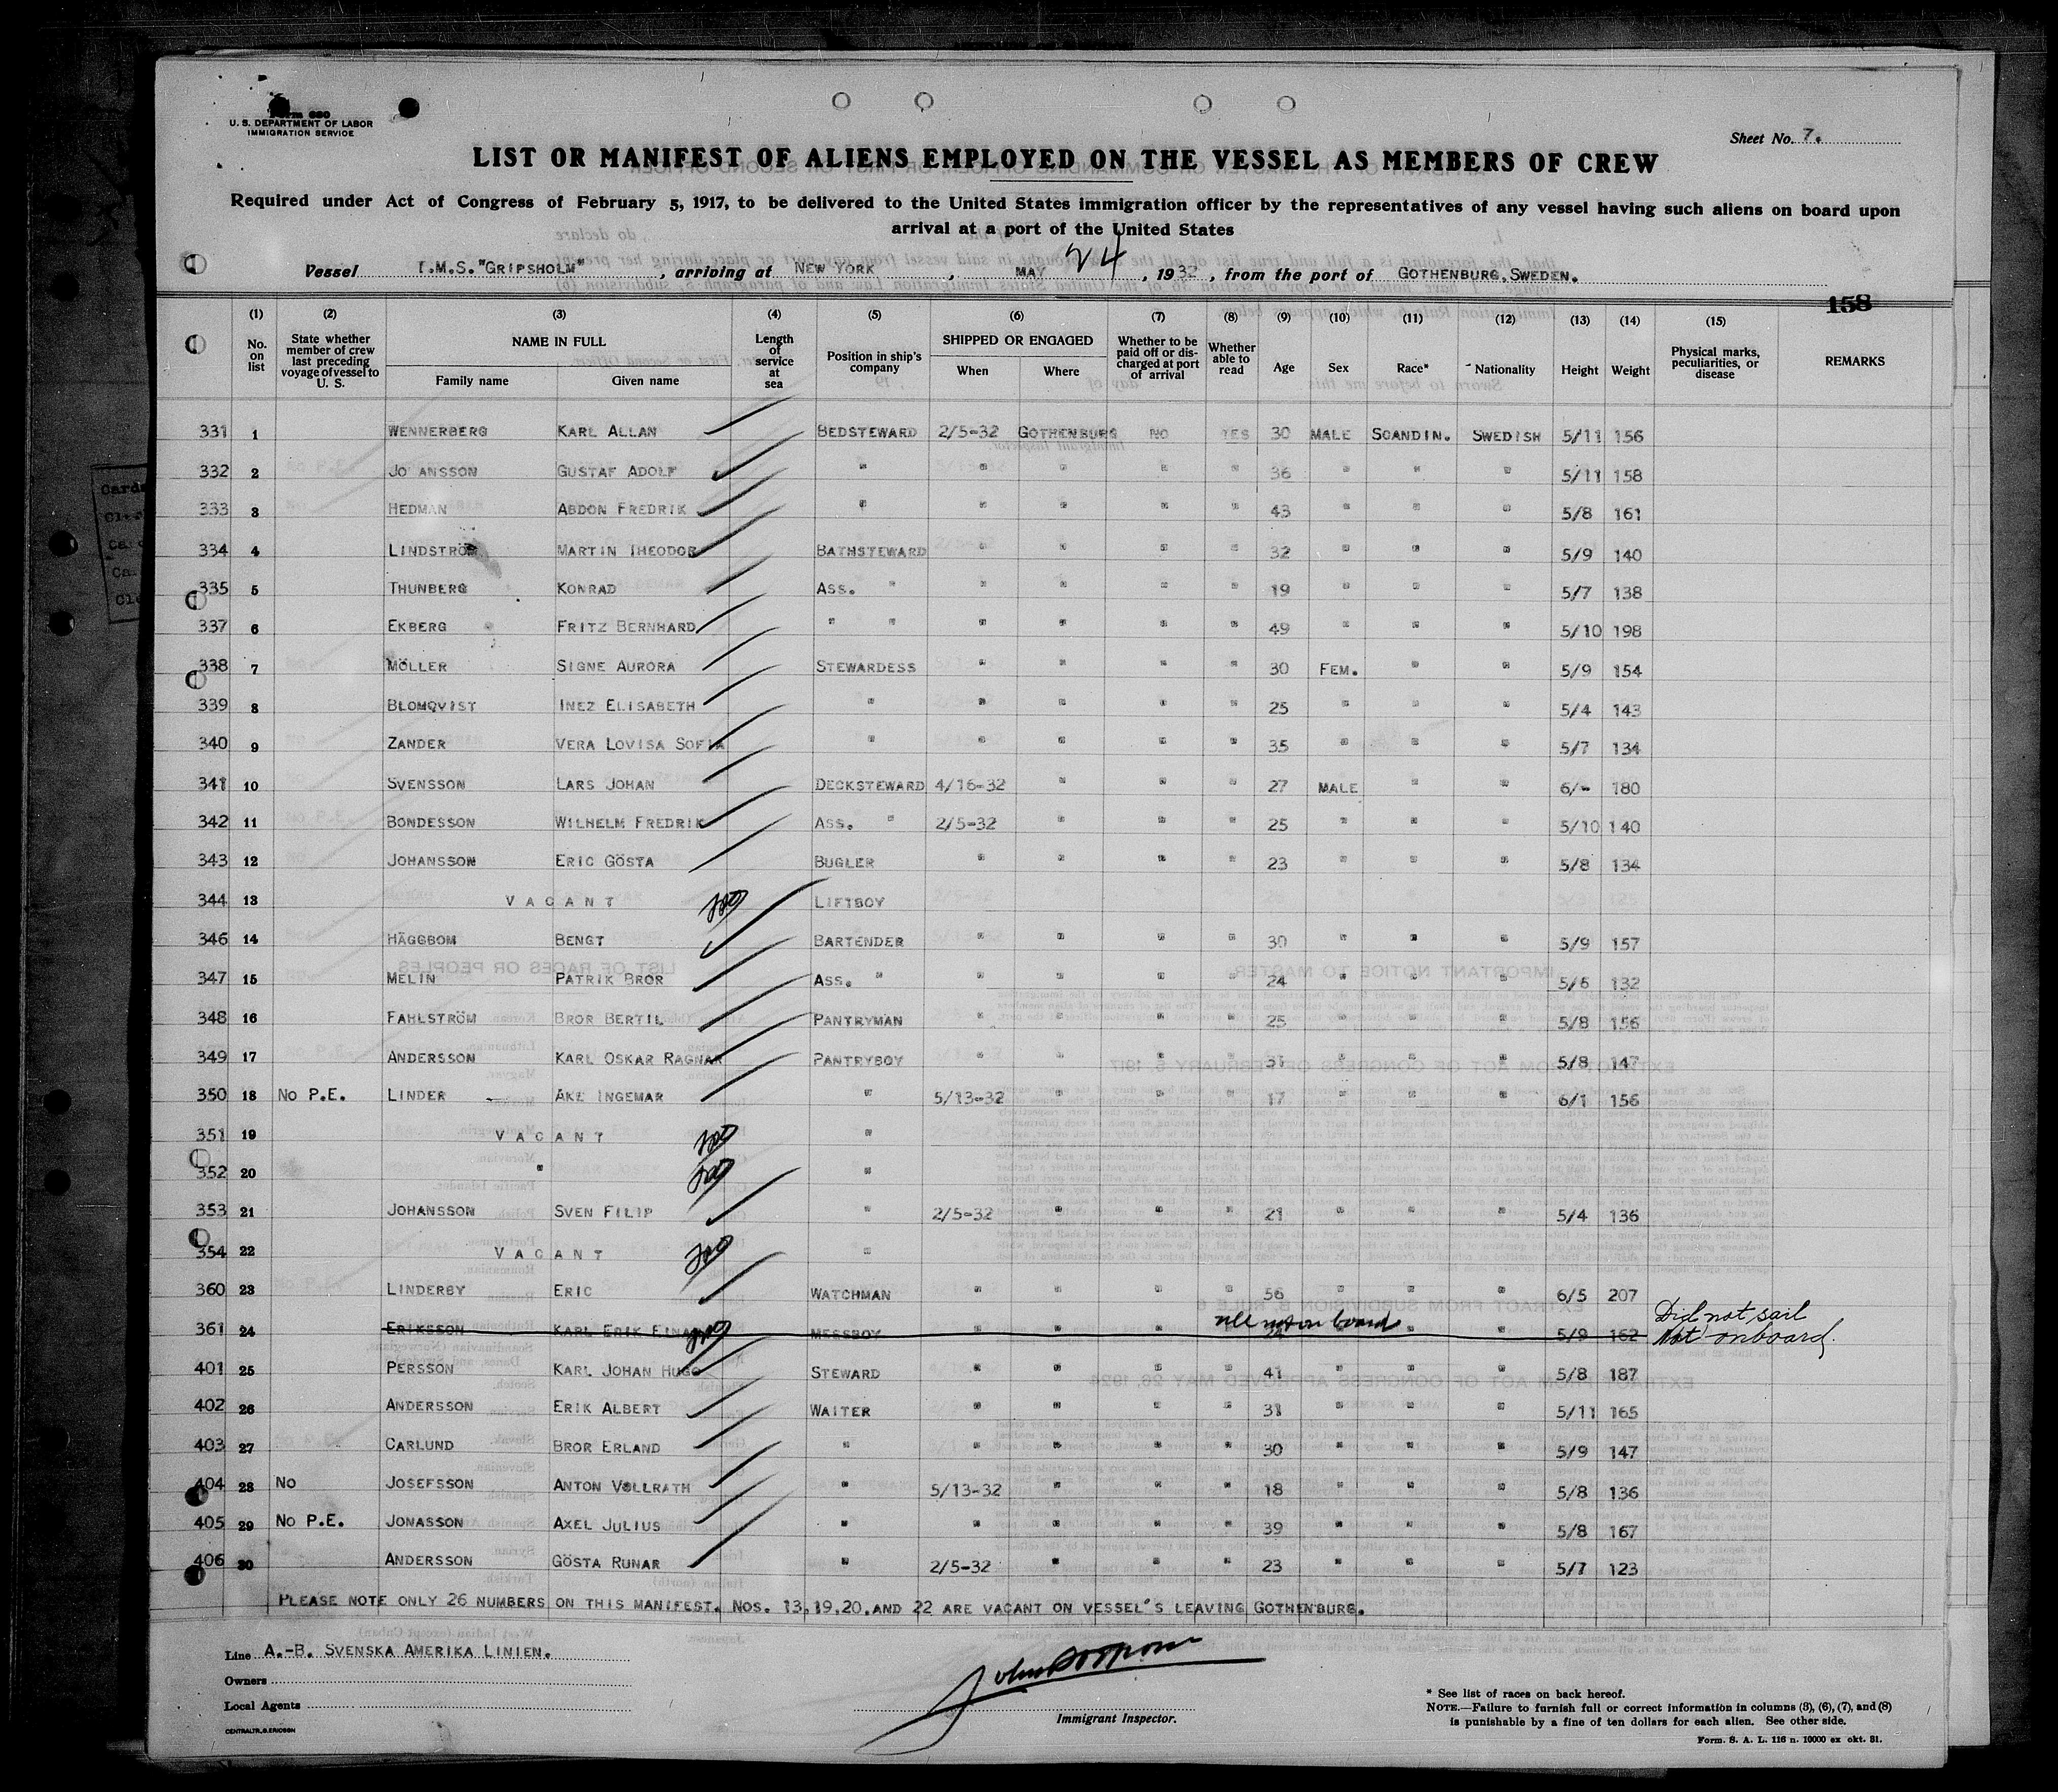 Form 680
U. S. DEPARTMENT OF LABOR
IMMIGRATION SERVICE
Sheet No. 7.
LIST OR MANIFEST OF ALIENS EMPLOYED ON THE VESSEL AS MEMBERS OF CREW
Required under Act of Congress of February 5, 1917, to be delivered to the United States immigration officer by the representatives of any vessel having such aliens on board upon
arrival at a port of the United States
Vessel T.M.S."GRIPSHOLM", arriving at NEW YORK, MAY 24, 1932, from the port of GOTHENBURG, SWEDEN.
158
(1) (2) (3) (4) (5) (6) (7) (8) (9) (10) (11) (12) (13) (14) (15)
No. on list State whether member of crew last preceding voyage of vessel to U. S. NAME IN FULL Family name Given name Length of service at sea Position in ship's company SHIPPED OR ENGAGED When Where Whether to be paid off or discharged at port of arrival Whether able to read Age Sex Race* Nationality Height Weight Physical marks, peculiarities, or disease REMARKS
331 1 WENNERBERG KARL ALLAN BEDSTEWARD 2/5-32 GOTHENBURG NO YES 30 MALE SCANDIN. SWEDISH 5/11 156
332 2 JO ANSSON GUSTAF ADOLF " " " " " 36 " " " 5/11 158
333 3 HEDMAN ABDON FREDRIK " " " " " 43 " " " 5/8 161
334 4 LINDSTRÖM MARTIN THEODOR BATHSTEWARD " " " " 32 " " " 5/9 140
335 5 THUNBERG KONRAD ASS. " " " " " 19 " " " 5/7 138
337 6 EKBERG FRITZ BERNHARD " " " " " " 49 " " " 5/10 198
338 7 MÖLLER SIGNE AURORA STEWARDESS " " " " 30 FEM. " " 5/9 154
339 8 BLOMQVIST INEZ ELISABETH " " " " " 25 " " " 5/4 143
340 9 ZANDER VERA LOVISA SOFIA " " " " " 35 " " " 5/7 134
341 10 SVENSSON LARS JOHAN DECKSTEWARD 4/16-32 " " " 27 MALE " " 6/- 180
342 11 BONDESSON WILHELM FREDRIK ASS. " 2/5-32 " " " 25 " " " 5/10 140
343 12 JOHANSSON ERIC GÖSTA BUGLER " " " " 23 " " " 5/8 134
344 13 V A C A N T LIFTBOY
346 14 HÄGGBOM BENGT BARTENDER " " " " 30 " " " 5/9 157
347 15 MELIN PATRIK BROR ASS. " " " " " 24 " " " 5/6 132
348 16 FAHLSTRÖM BROR BERTIL PANTRYMAN " " " " 25 " " " 5/8 156
349 17 ANDERSSON KARL OSKAR RAGNAR PANTRYBOY " " " " 31 " " " 5/8 147
350 18 NO P.E. LINDER ÅKE INGEMAR " 5/13-32 " " " 17 " " " 6/1 156
351 19 V A C A N T "
352 20 " "
353 21 JOHANSSON SVEN FILIP " 2/5-32 " " " 21 " " " 5/4 136
354 22 V A C A N T "
360 23 LINDERBY ERIC WATCHMAN " " " " 56 " " " 6/5 207
361 24 ERIKSSON KARL ERIK EINAR MESSBOY " " " not on board 5/9 162 Did not sail
Not onboard.
401 25 PERSSON KARL JOHAN HUGO STEWARD " " " " 41 " " " 5/8 187
402 26 ANDERSSON ERIK ALBERT WAITER " " " " 31 " " " 5/11 165
403 27 CARLUND BROR ERLAND " " " " " 30 " " " 5/9 147
404 28 NO JOSEFSSON ANTON VOLLRATH " 5/13-32 " " " 18 " " " 5/8 136
405 29 NO P.E. JONASSON AXEL JULIUS " " " " " 39 " " " 5/8 167
406 30 ANDERSSON GÖSTA RUNAR " 2/5-32 " " " 23 " " " 5/7 123
PLEASE NOTE ONLY 26 NUMBERS ON THIS MANIFEST. NOS. 13,19,20,AND 22 ARE VACANT ON VESSEL'S LEAVING GOTHENBURG.
Line A.-B. SVENSKA AMERIKA LINIEN.
Owners
Local Agents
CENTRALTR.,G.ERICSON
Immigrant Inspector.
* See list of races on back hereof.
NOTE.—Failure to furnish full or correct information in columns (3), (6), (7), and (8)
is punishable by a fine of ten dollars for each alien. See other side.
Form. S. A. L. 116 n. 10000 ex okt. 31.